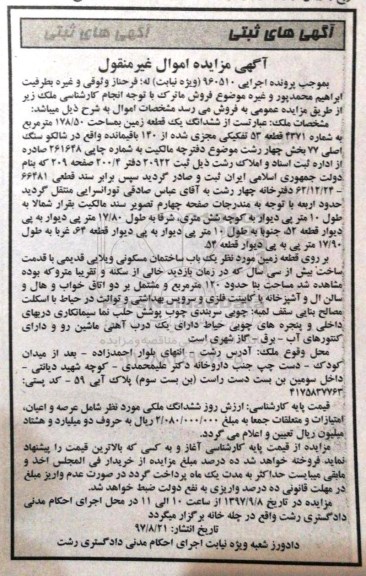 آگهی های ثبتی
آگهی های ثبتی
آگهی مزایده اموال غیرمنقول
بموجب پرونده اجرایی ۹۶۰۵۱۰ (ویژه نیابت) له: فرحناز وثوقی و غیره بطرفیت
ابراهیم محمدپور و غیره موضوع فروش ماترک با توجه انجام کارشناسی ملک زیر
از طریق مزایده عمومی به فروش می رسد مشخصات اموال به شرح ذیل میباشد:
مشخصات ملک: عبارتست از ششدانگ یک قطعه زمین بمساحت ۱۷۸/۵۰ مترمربع
به شماره ۴۳۷۱ قطعه ۵۳ تفکیکی مجزی شده از ۱۴۰ باقیمانده واقع در شالکو سنگ
اصلی ۷۷ بخش چهار رشت موضوع دفترچه مالکیت به شماره چاپی ۲۶۱۶۴۸ صادره
از اداره ثبت اسناد و املاک رشت ذیل ثبت ۲۰۹۲۲ دفتر ۲۰۰/۴ صفحه ۲۰۹ که بنام
دولت جمهوری اسلامی ایران ثبت و صادر گردید سپس برابر سند قطعی ۶۶۲۸۱
– ۶۲/۱۲/۲۴ دفترخانه چهار رشت به آقای عباس صادقی تورانسرایی منتقل گردید
حدود اربعه با توجه به مندرجات صفحه چهارم تصویر سند مالکیت بقرار شمالا به
طول ۱۰ متر پی دیوار به کوچه شش متری، شرقا به طول ۱۷/۸۰ متر پی دیوار به پی
دیوار قطعه ۵۲، جنوبا به طول ۱۰ متر پی دیوار به پی دیوار قطعه ۶۴ غربا به طول
۱۷/۹۰ متر پی به پی دیوار قطعه ۵۴.
بر روی قطعه زمین مورد نظر یک باب ساختمان مسکونی ویلایی قدیمی با قدمت
ساخت بیش از سی سال که در زمان بازدید خالی از سکنه و تقریبا متروکه بوده
مشاهده شد مساحت بنا حدود ۱۲۰ مترمربع و مشتمل بر دو اتاق خواب و هال و
سالن ال و آشپزخانه با کابینت فلزی و سرویس بهداشتی و توالت در حیاط با اسکلت
مصالح بنایی سقف لمبه: چوبی سربندی چوب پوشش حلب نما سیمانکاری دربهای
داخلی و پنجره های چوبی حیاط دارای یک درب آهنی ماشین رو و دارای
کنتورهای آب – برق – گاز شهری است
محل وقوع ملک: آدرس رشت – انتهای بلوار احمدزاده – بعد از میدان
کودک – دست چپ جنب داروخانه دکتر علیمحمدی – کوچه شهید دیانتی –
داخل سومین بن بست دست راست (بن بست سوم) پلاک آبی ۵۹ – کد پستی:
۴۱۷۵۸۳۷۷۶۳
قیمت پایه کارشناسی: ارزش روز ششدانگ ملکی مورد نظر شامل عرصه و اعیان،
امتیازات و متعلقات جمعا به مبلغ ۲/۰۸۰/۰۰۰/۰۰۰ ریال به حروف دو میلیارد و هشتاد
میلیون ریال تعیین و اعلام می گردد.
مزایده از قیمت پایه کارشناسی آغاز و به کسی که بالاترین قیمت را پیشنهاد
نماید فروخته خواهد شد ده درصد مبلغ مزایده از خریدار فی المجلس اخذ و
مابقی میبایست حداکثر به مدت یک ماه پرداخت گردد در صورت عدم واریز مبلغ
در مهلت قانونی ده درصد واریزی به نفع دولت ضبط خواهد شد.
مزایده در تاریخ ۱۳۹۷/۹/۸ از ساعت ۱۰ الی ۱۱ در محل اجرای احکام مدنی
دادگستری رشت واقع در چله خانه برگزار میگردد
تاریخ انتشار: ۹۷/۸/۲۱
دادورز شعبه ویژه نیابت اجرای احکام مدنی دادگستری رشت